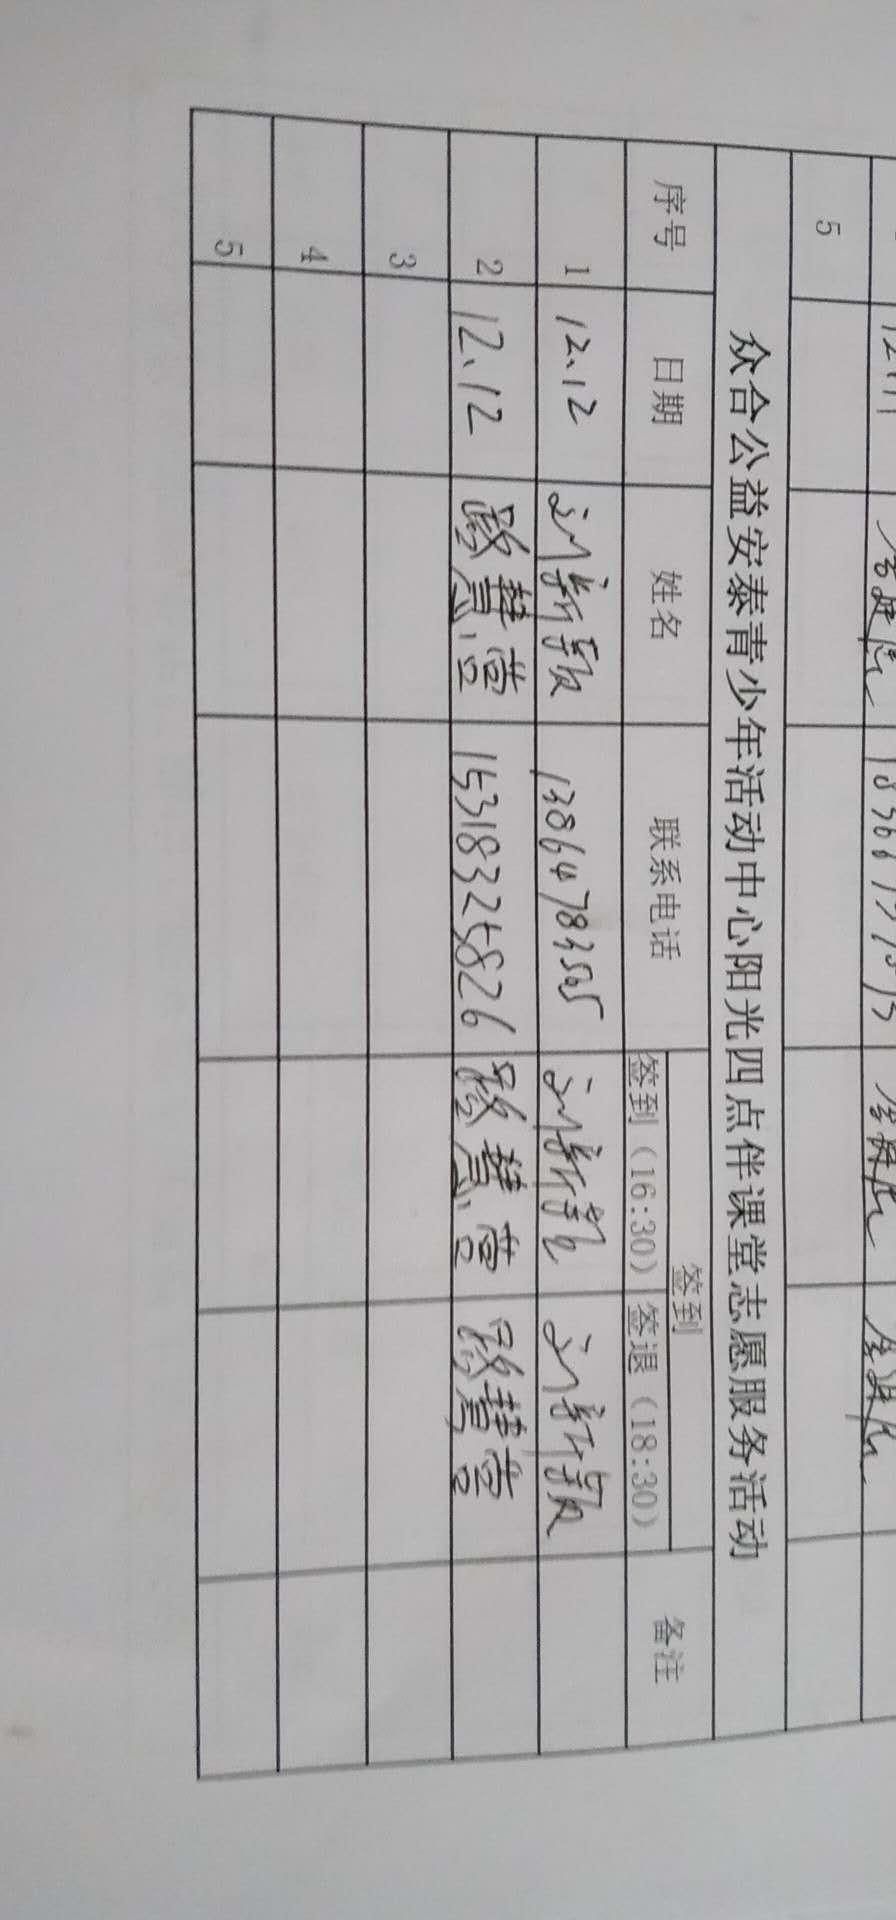 5
众合公益安泰青少年活动中心阳光四点伴课堂志愿服务活动
序号 日期 姓名 联系电话 签到 备注
签到（16:30） 签退（18:30）
1 12.12 刘新颖 13864783505 刘新颖 刘新颖
2 12.12 路慧营 15318325826 路慧营 路慧营
3
4
5